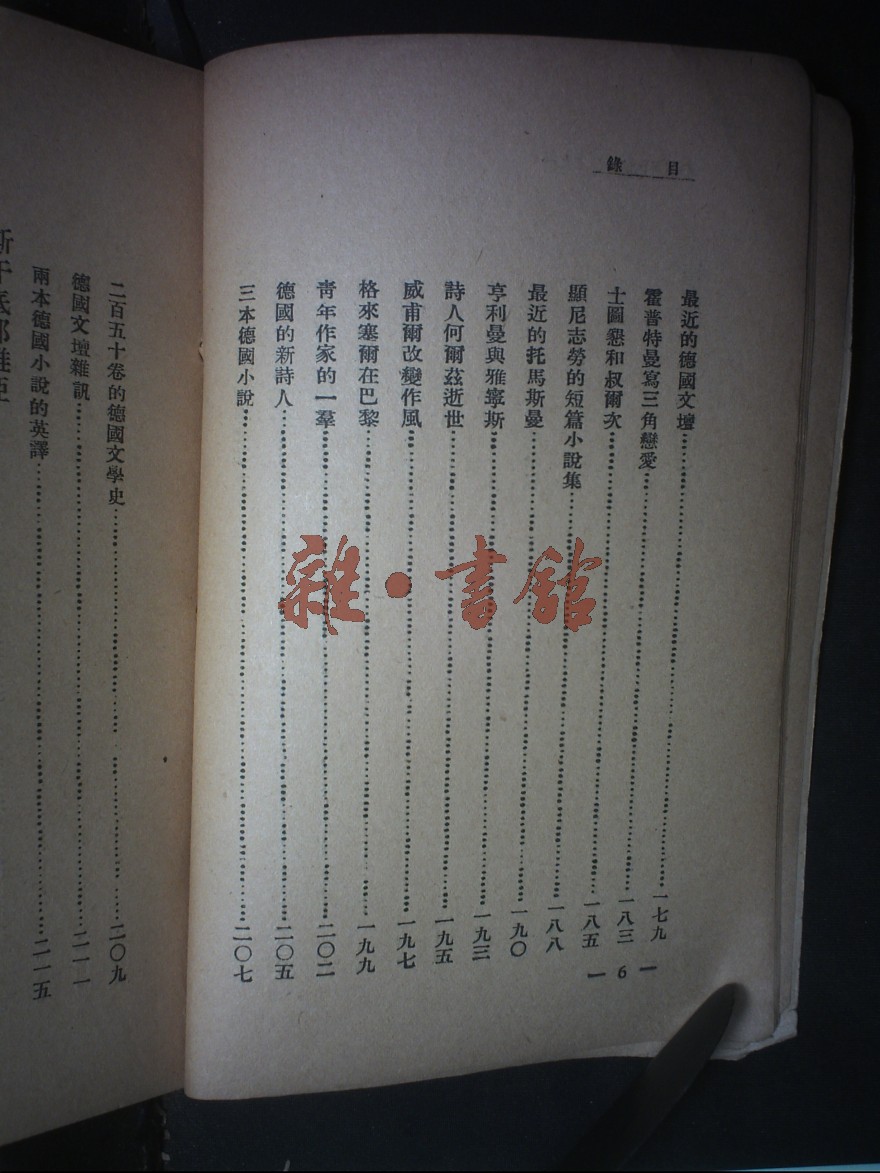 目錄
最近的德國文壇……一七九
霍普特曼寫三角戀愛……一八三
士圖懇和叔爾次……一八五
顯尼志勞的短篇小說集……一八八
最近的托馬斯曼……一九〇
亨利曼與雅寧斯……一九三
詩人何爾茲逝世……一九五
威甫爾改變作風……一九七
格來塞爾在巴黎……一九九
青年作家的一羣……二〇二
德國的新詩人……二〇五
三本德國小說……二〇七
— 6 —
二百五十卷的德國文學史……二〇九
德國文壇雜訊……二一一
兩本德國小說的英譯……二一五
雜·書館